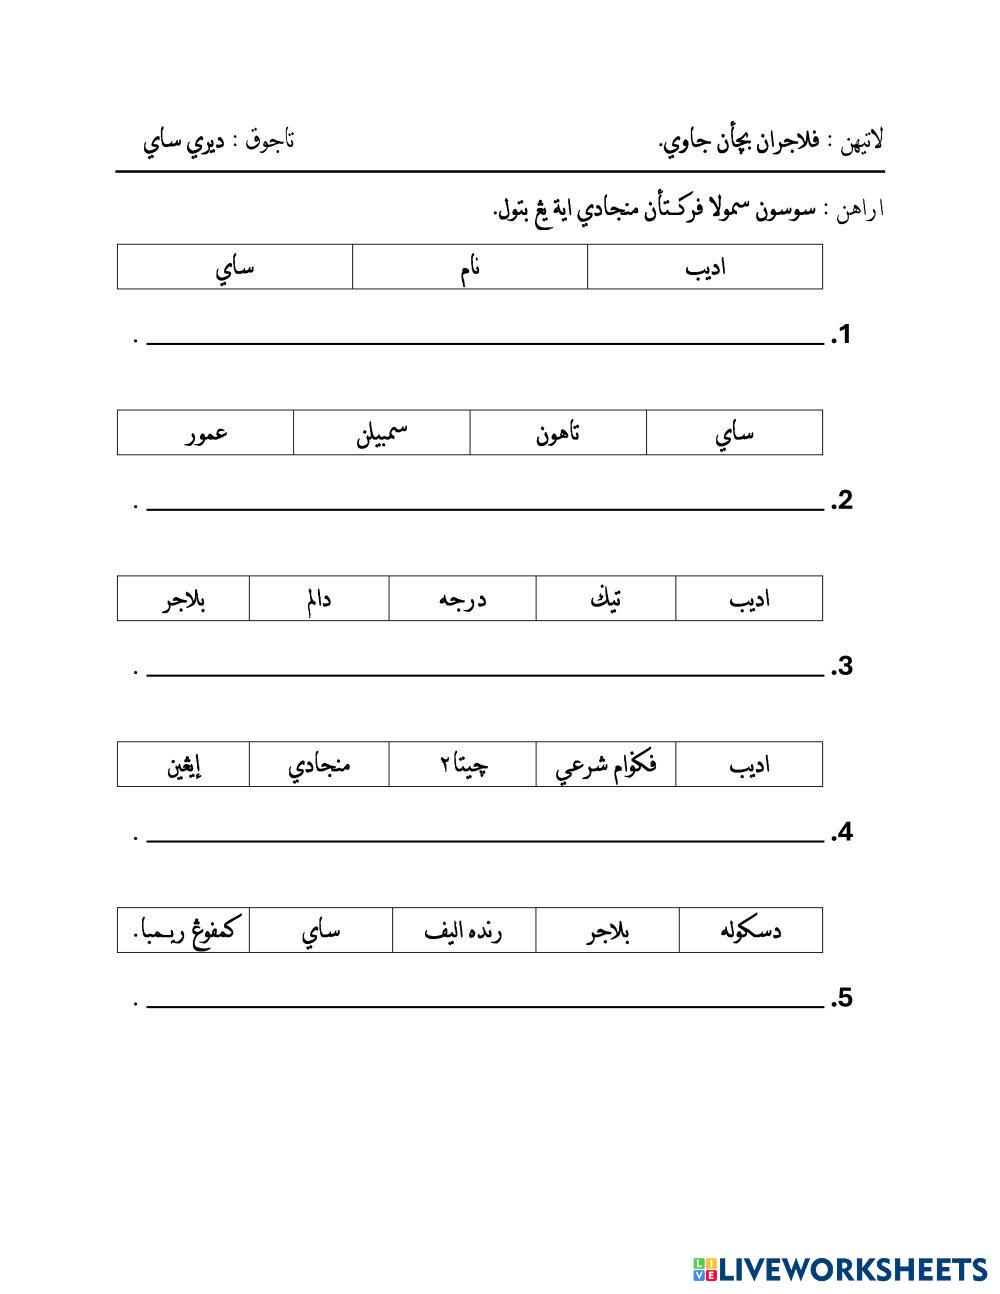 لاتيهن : فلاجران بچأن جاوي. تاجوق : ديري ساي
اراهن : سوسون سمولا فركتأن منجادي اية يڠ بتول.
اديب نام ساي
1. .
ساي تاهون سمبيلن عمور
2. .
اديب تيݢ درجه دالم بلاجر
3. .
اديب فݢوام شرعي چيتا٢ منجادي إيڠين
4. .
دسكوله بلاجر رنده اليف ساي كمفوڠ ريمبا.
5. .
LIVEWORKSHEETS